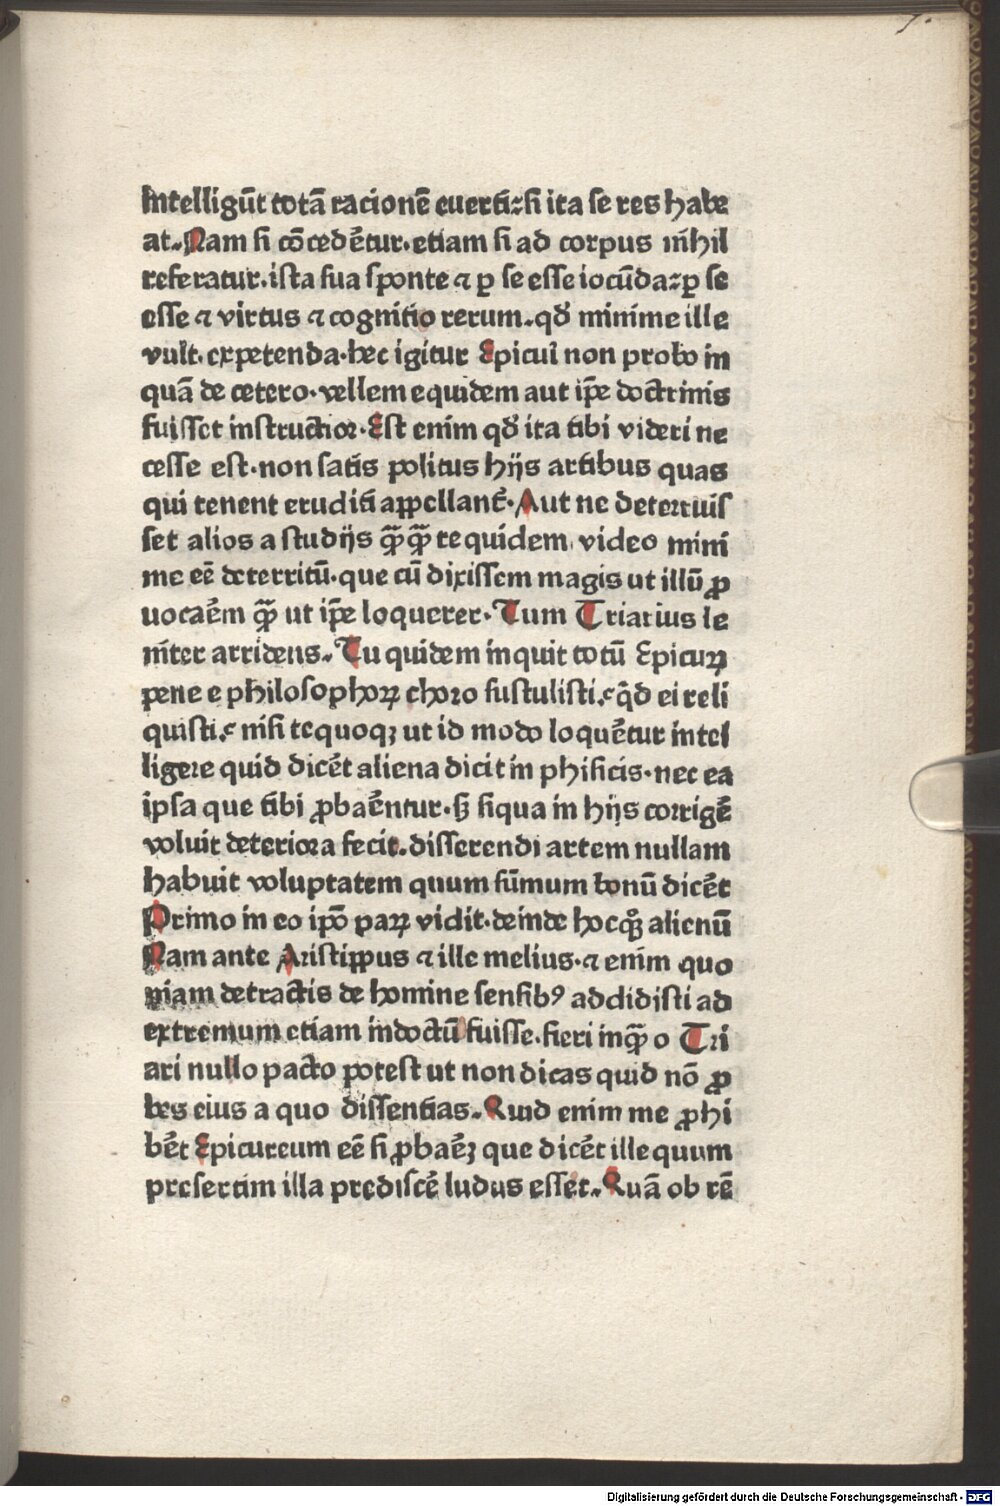 7.
intelligūt totā racionē euerti: si ita se res habe
at. Nam si cōcedētur. etiam si ad corpus nīhil
referatur. ista sua sponte ⁊ ꝑ se esse iocūda: ꝑ se
esse ⁊ virtus ⁊ cognitio rerum. qđ minime ille
vult. expetenda. hec igitur Epicuri non probo in
quā de cetero. vellem equidem aut ip̄e doctrinis
fuisset instructior. Est enim qđ ita tibi videri ne
cesse est. non satis politus hijs artibus quas
qui tenent eruditi appellant᷑. Aut ne deterruis
set alios a studijs qͣ̄qͣ̄ te quidem video mini
me eē deterritū. que cū dixissem magis ut illū ꝓ
uocaēm qͣ̄ ut ip̄e loquerer. Tum Triarius le
nīter arridens. Tu quidem inquit totū Epicuꝝ
pene e philosophoꝝ choro sustulisti. qͥd ei reli
quisti. nisi te quoqꝫ ut id modo loquētur intel
ligere quid dicēt aliena dicit in phisicis. nec ea
ipsa que tibi ꝓbaēntur. sꝫ siqua in hijs corrigē
voluit deteriora fecit. disserendi artem nullam
habuit voluptatem quum sūmum bonū dicēt
Primo in eo ipō paꝝ vidit. deinde hoc qͦꝫ alienū
Nam ante Aristippus ⁊ ille melius. ⁊ enim quo
niam detractis de homine sensibꝰ addidisti ad
extremum etiam indoctū fuisse. fieri inqͣ̄ o Tri
ari nullo pacto potest ut non dicas quid nō ꝓ
bes eius a quo dissentias. Quid enim me ꝓhi
bēt Epicureum eē si ꝓbaēꝫ que dicēt ille quum
presertim illa prediscē ludus esset. Quā ob rē
Digitalisierung gefördert durch die Deutsche Forschungsgemeinschaft - DFG